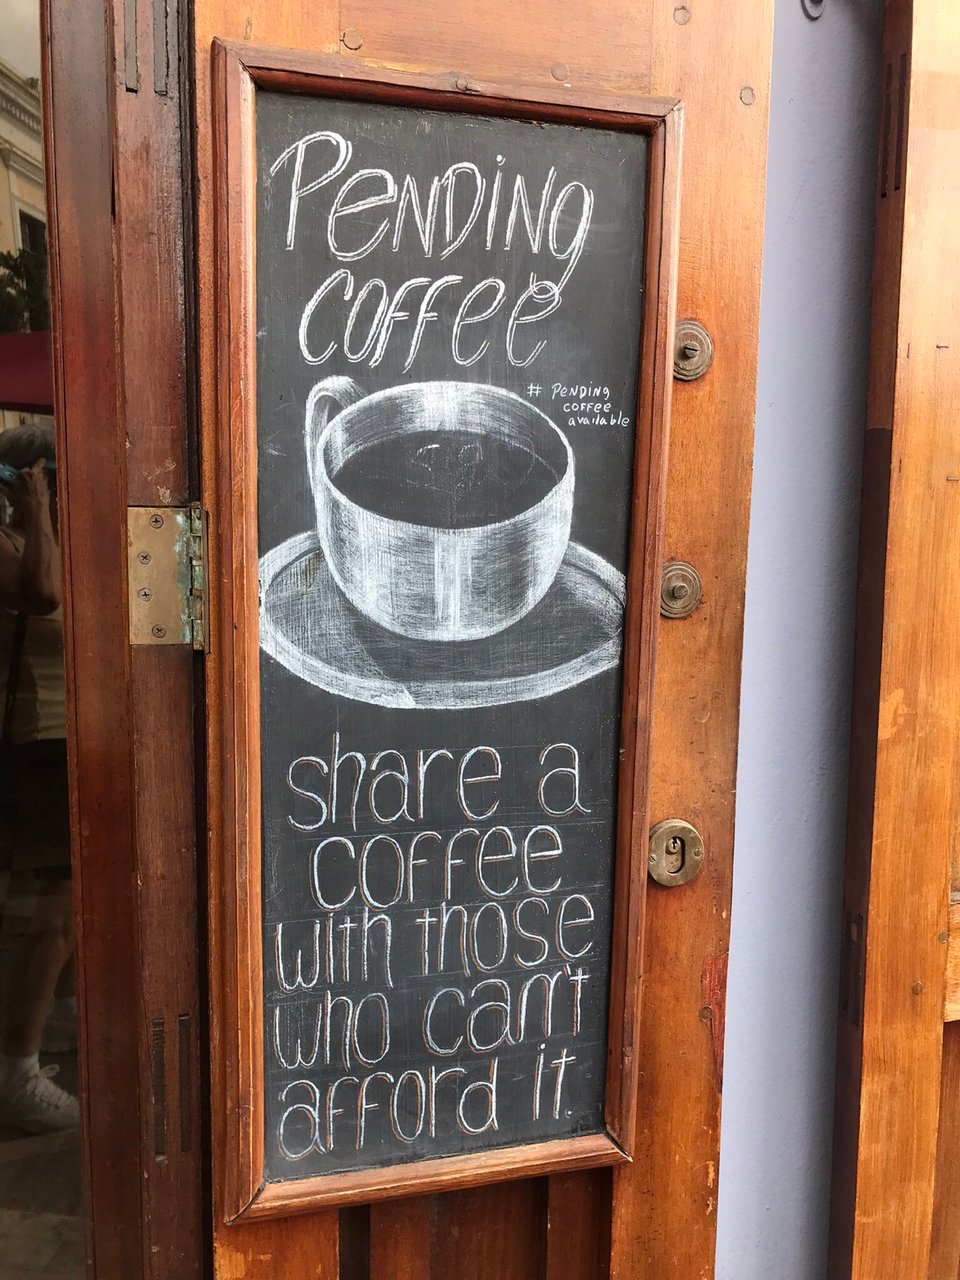 Pending
coffee
# Pending
coffee
available
share a
coffee
with those
who can't
afford it.